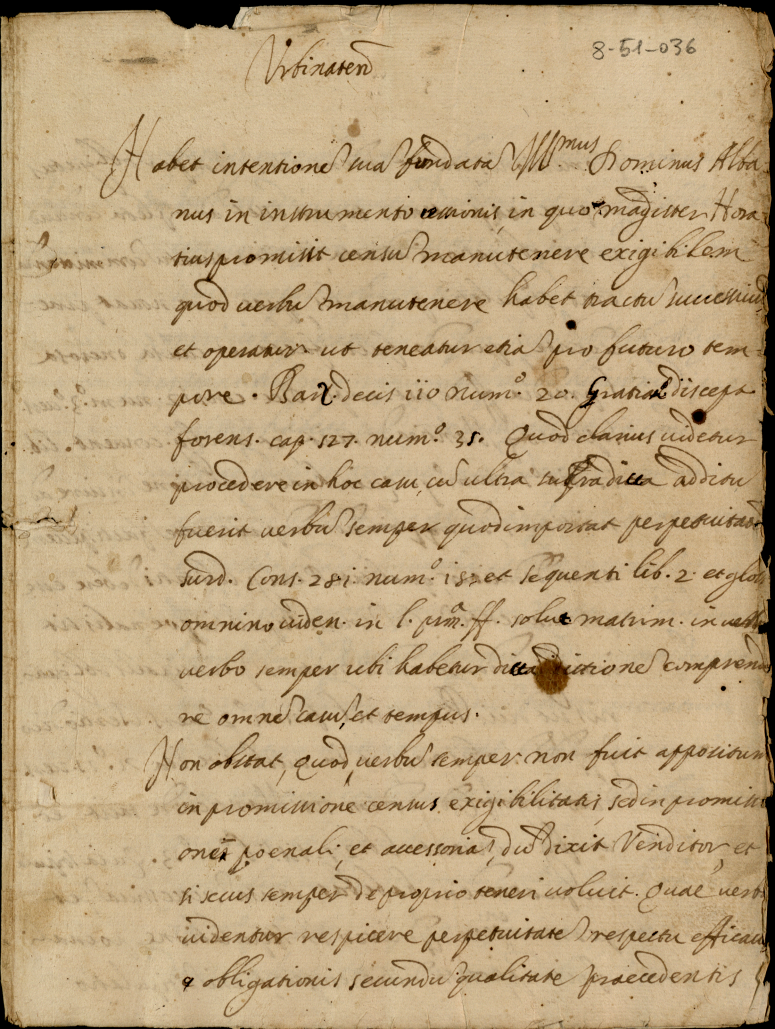 Urbinaten
8-51-036
Habet intentione sua fundata Illmus Dominus Alba
nus in instrumento cessionis, in quo magister Hora
tius promisit censu manutenere exigibilem
quod verbu manutenere habet tractu successivu
et operatur ut teneatur etia pro futuro tem
pore. decis 110 num.o 20. Gratia discept
forens. cap. 527. num.o 35. Quod clarius videtur
procedere in hoc casu, cu ultra supradicta additu
fuerit verbu semper quod importat perpetuitate
surd. Cons. 281. num.o 15. et sequenti lib. 2. et glos
omnino viden. in l. prim. ff. solut matrim. in
verbo semper ubi habetur dicta dictione comprende
re omne casu, et tempus.
Non obstat, quod verbu semper non fuit appositum
in promissione census exigibilitatis, sed in promissi
one poenali, et accessoria, du dixit Venditor, et
si secus semper de proprio teneri voluit. Quae verb
videntur respicere perpetuitate respectu efficaci
obligationis secundu qualitate praecedentis